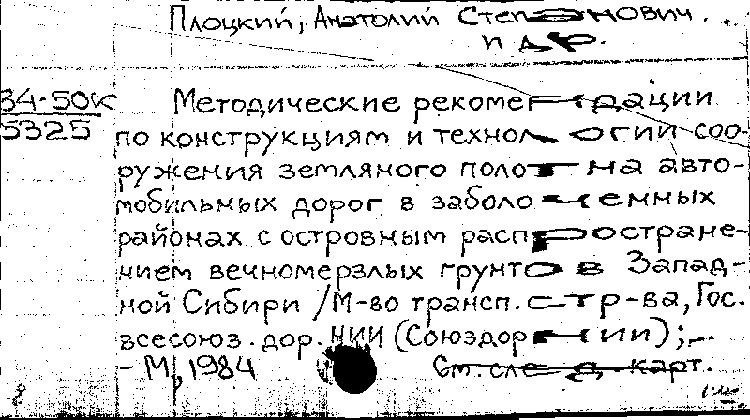 Плоцкий, Анатолий Степанович.
и др.
84-50к
5325
Методические рекомендации
по конструкциям и технологии соо-
ружения земляного полотна авто-
мобильных дорог в заболоченных
районах с островным распростране-
нием вечномерзлых грунтов Запад-
ной Сибири / М-во трансп. стр-ва, Гос.
всесоюз. дор. НИИ (Союздорнии);..
- М, 1984
См. след. карт.